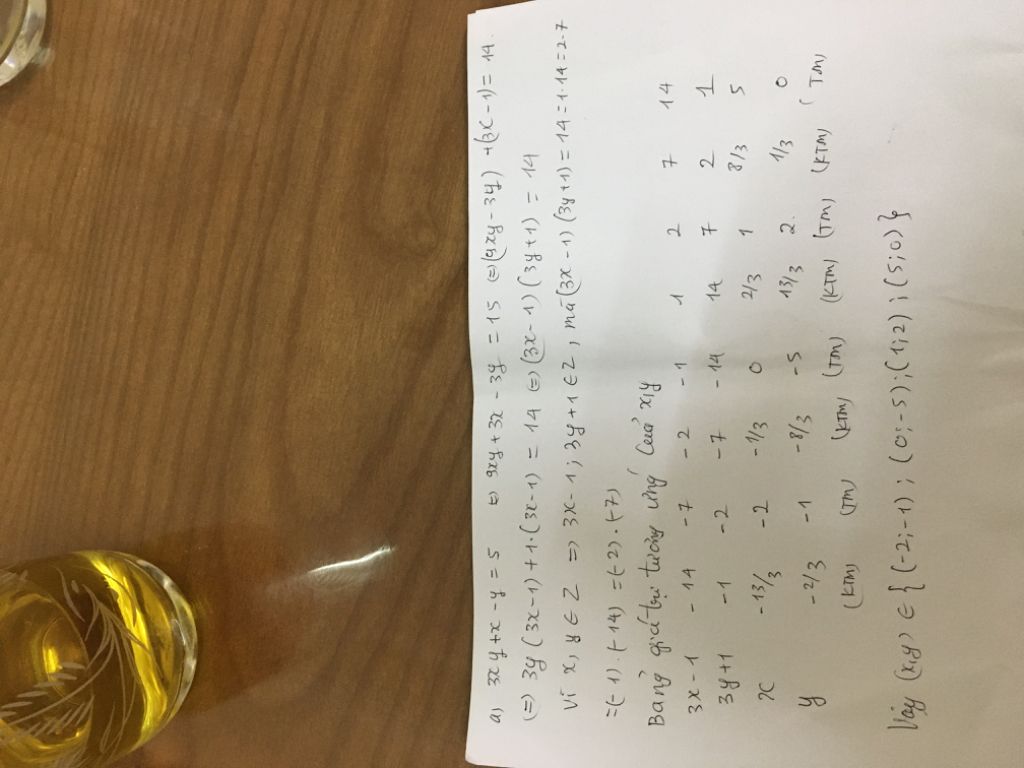 a) 3xy + x - y = 5 ⇔ 9xy + 3x - 3y = 15 ⇔ (9xy - 3y) + (3x - 1) = 14.
⇔ 3y(3x - 1) + 1.(3x - 1) = 14 ⇔ (3x - 1)(3y + 1) = 14
Vì x, y ∈ Z ⇒ 3x - 1; 3y + 1 ∈ Z, mà (3x - 1)(3y + 1) = 14 = 1.14 = 2.7
= (-1).(-14) = (-2).(-7)
Bảng giá trị tương ứng của x,y
3x - 1 -14 -7 -2 -1 1 2 7 14
3y + 1 -1 -2 -7 -14 14 7 2 1
x -13/3 -2 -1/3 0 2/3 1 8/3 5
y -2/3 -1 -8/3 -5 13/3 2. 1/3 0
(KTM) (TM) (KTM) (TM) (KTM) (TM) (KTM) (TM)
Vậy (x;y) ∈ {(-2;-1); (0;-5); (1;2); (5;0)}